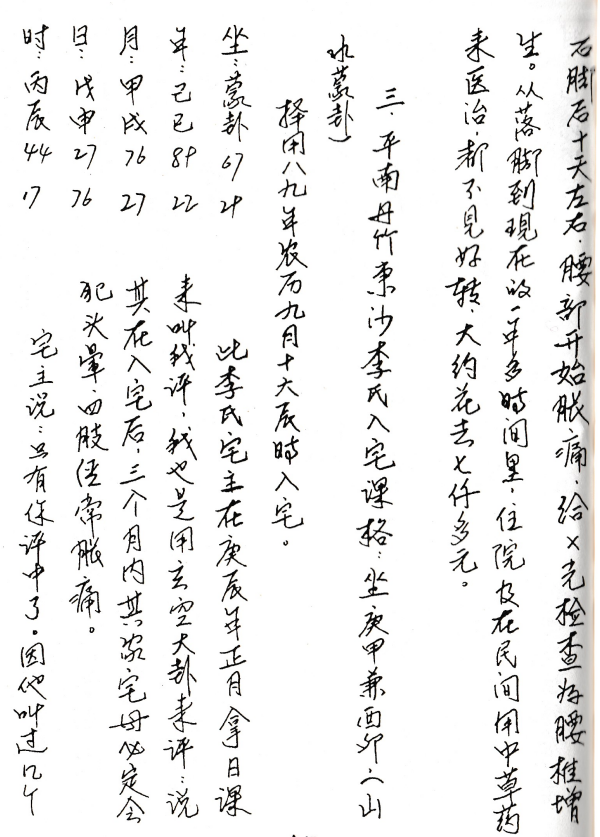 石脚后十天左右，腰部开始胀痛，给X光检查为腰椎增
生。从落脚到现在的一年多时间里，住院及在民间用中草药
来医治，都不见好转，大约花去七仟多元。
三．平南丹竹东沙李氏入宅课格：坐庚甲兼酉卯(山
水蒙卦)
择用八九年农历九月十六辰时入宅。
坐：蒙卦 67 24
年：己巳 89 22
月：甲戌 76 27
日：戊申 27 76
时：丙辰 44 17
此李氏宅主在庚辰年正月拿日课
来叫我评，我也是用玄空大卦来评：说
其在入宅后，三个月内其家宅母必定会
犯头晕，四肢经常胀痛。
宅主说：只有你评中了。因他叫过几个